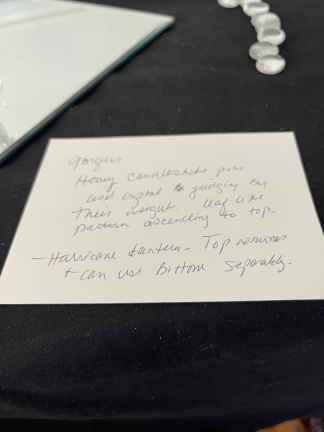 Gorgeous
Heavy candlesticks pure
lead crystal to judging by
their weight leaf like
pattern ascending to top.
- Hurricane lantern - Top removes
+ can use bottom separately.